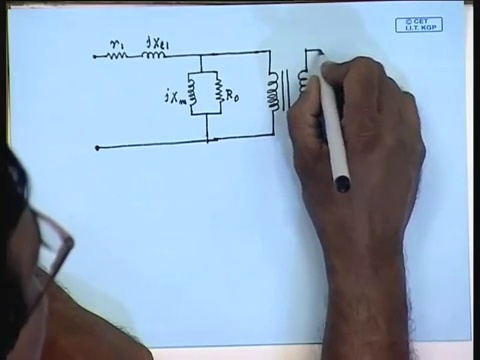 © CET
I.I.T. KGP
r₁ jxℓ₁
jxₘ R₀